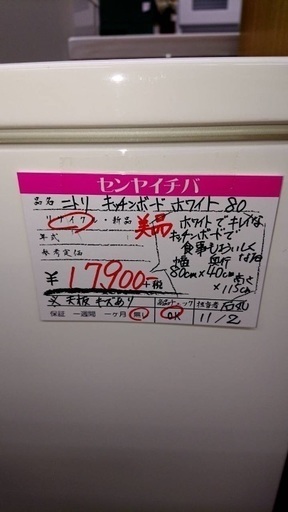 センヤイチバ
品名 ニトリ キッチンボード ホワイト 80
リサイクル・新品 美品
年式
参考定価
¥17,900-+税
ホワイトでキレイな
キッチンボードで
食事もおいしく
なる
幅 奥行 高さ
80cm×40cm×115cm
※天板キズあり
保証 一週間 一ヶ月 無し
品質チェック OK
担当者
11/2